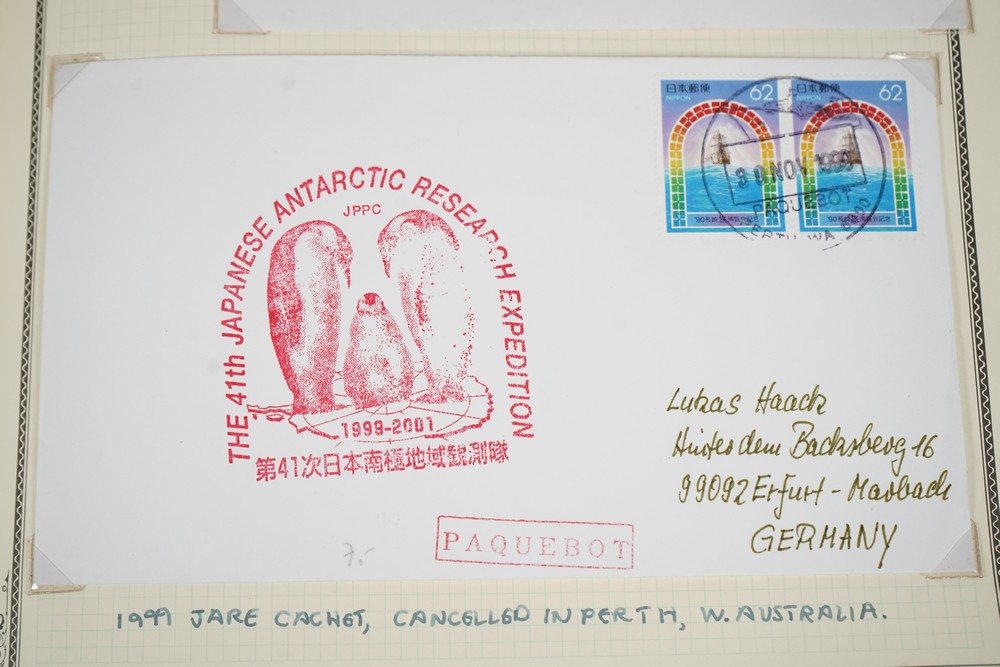 日本郵便 62
NIPPON
日本郵便 62
NIPPON
30 NOV 1999
PAQUEBOT
PERTH WA 6000
THE 41th JAPANESE ANTARCTIC RESEARCH EXPEDITION
JPPC
1999-2001
第41次日本南極地域観測隊
Lukas Haack
Hinter dem Backsberg 16
99092 Erfurt - Marbach
GERMANY
PAQUEBOT
7.-
1999 JARE CACHET, CANCELLED IN PERTH, W. AUSTRALIA.